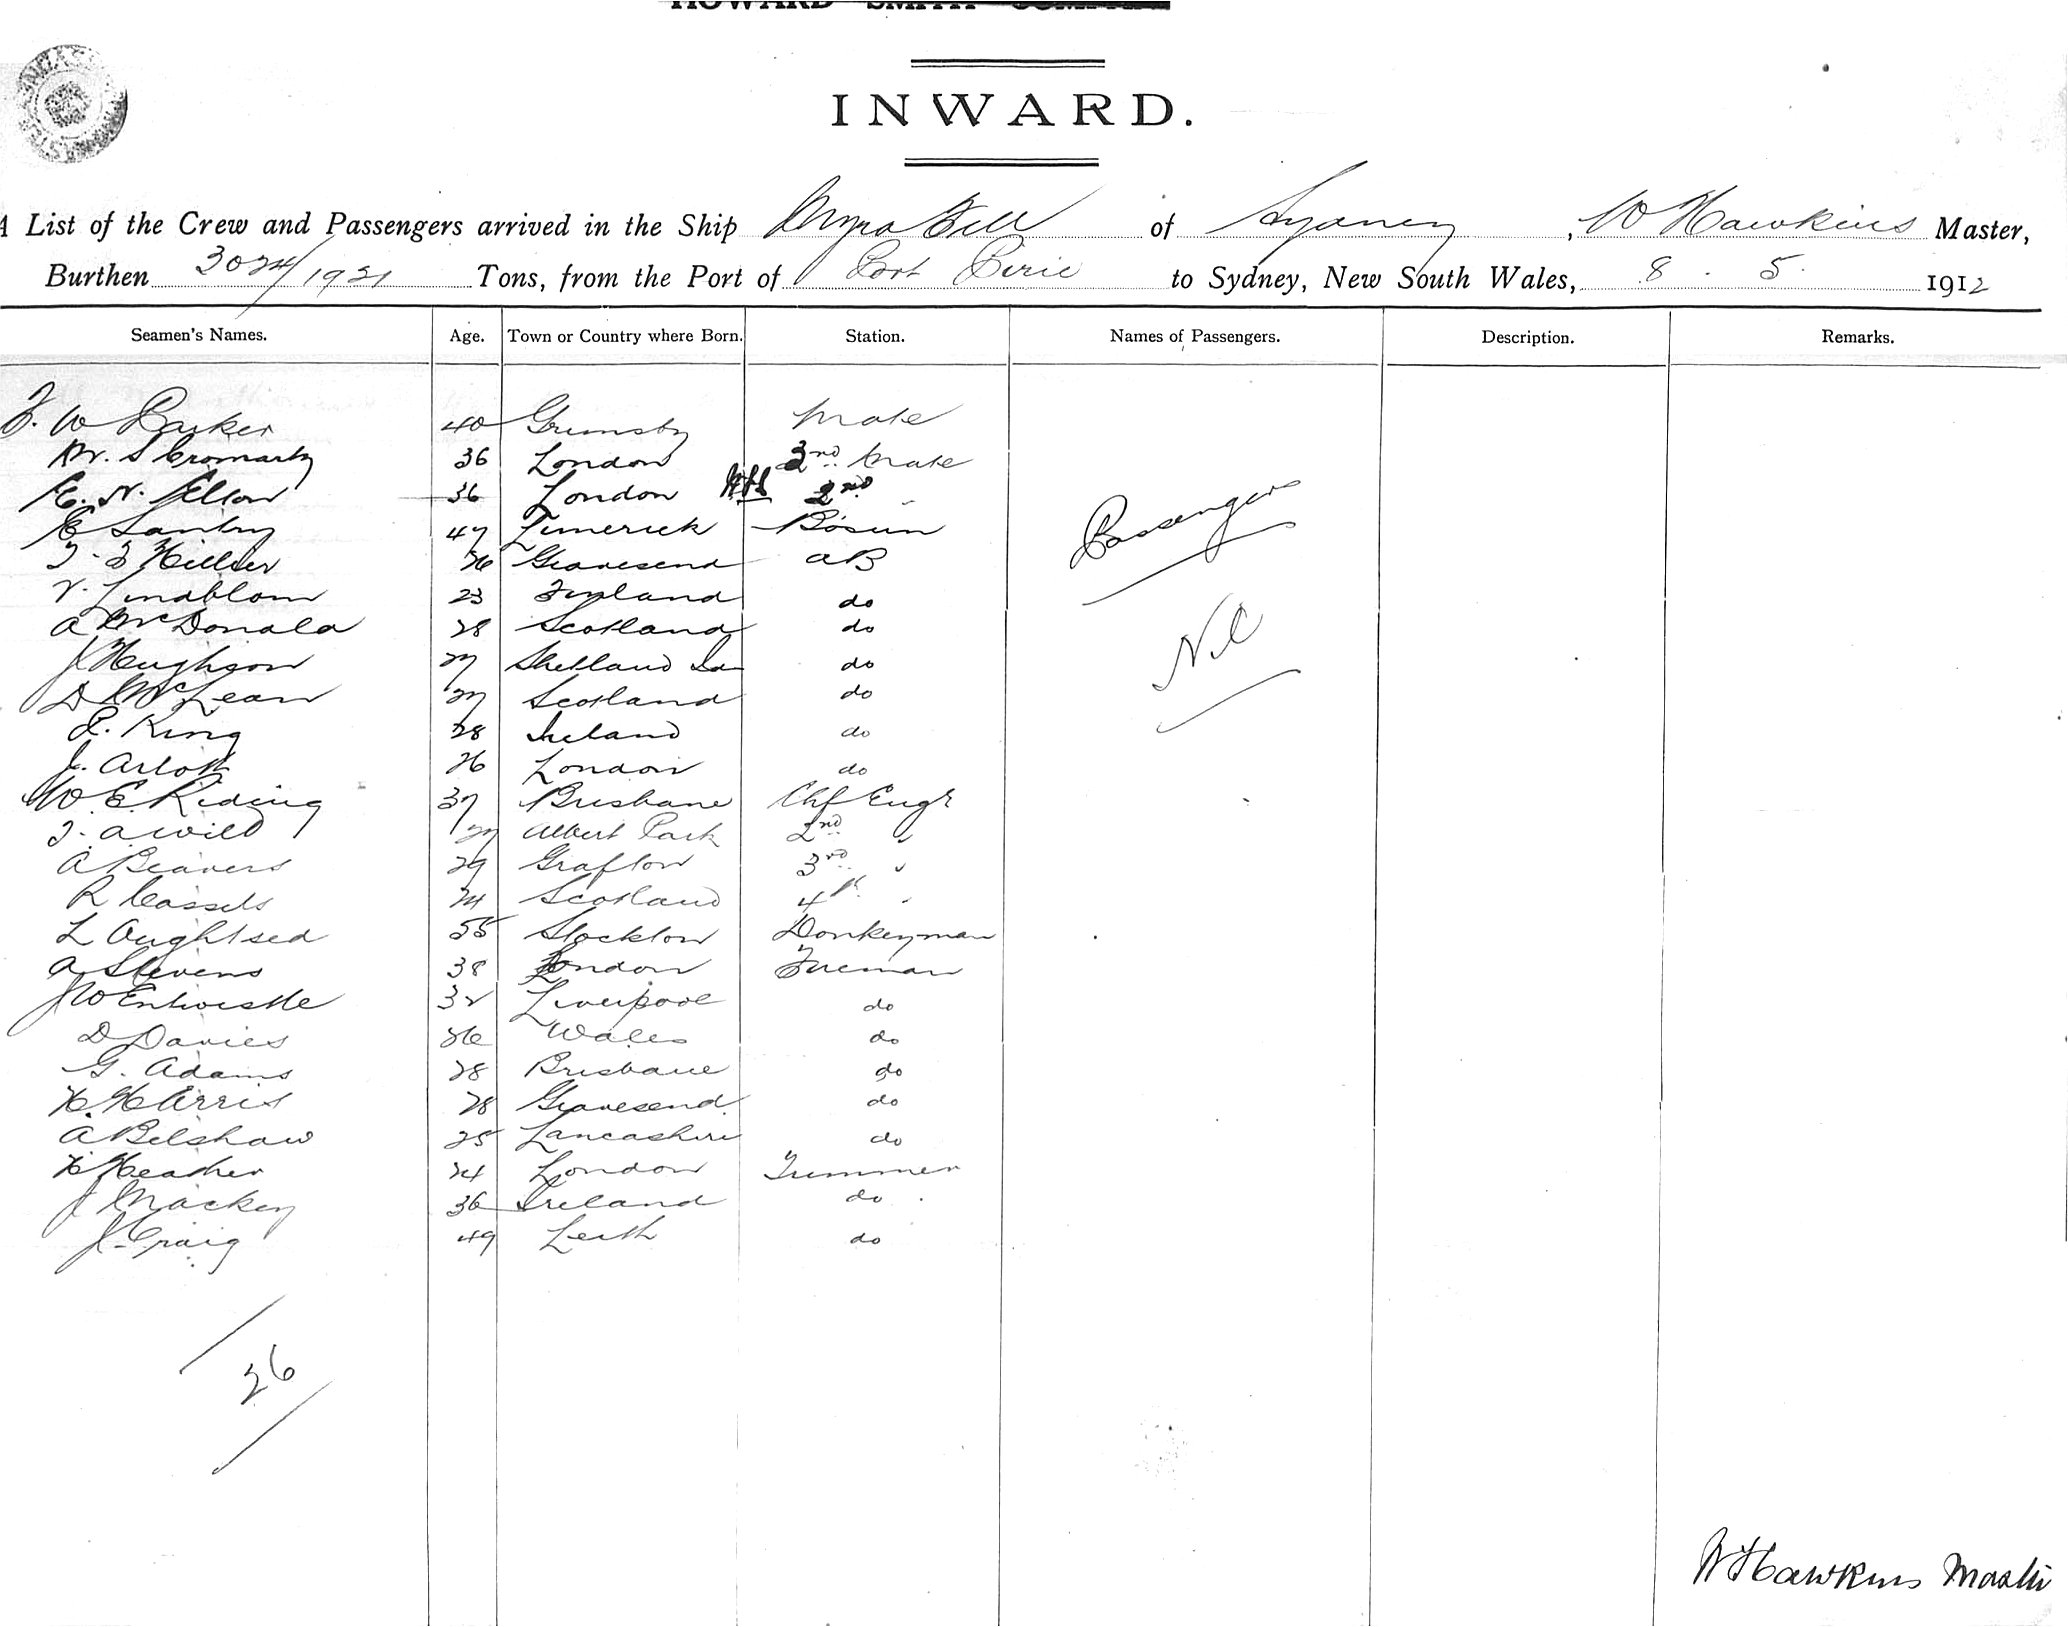 HOWARD SMITH COMPANY
INWARD.
A List of the Crew and Passengers arrived in the Ship Myra Fell of Sydney, W Hawkins Master,
Burthen 3024/1921 Tons, from the Port of Port Pirie to Sydney, New South Wales, 8. 5. 1912
Seamen's Names. Age. Town or Country where Born. Station. Names of Passengers. Description. Remarks.
F. W Parker 40 Grimsby Mate
M. S Cromarty 36 London 2nd Mate
E. N. 36 London 2nd "
E Santry 47 Limerick Bosun
T. F Hillier 26 Gravesend AB
V. Lindblom 23 Finland do
A McDonald 28 Scotland do
J Hughson 27 Shetland Is do
D McLean 27 Scotland do
E. King 28 Ireland do
J. Arlott 26 London do
W. E. Riding 37 Brisbane Chf Engr
T. A Wild 27 Albert Park 2nd "
A Beavers 29 Grafton 3rd "
R Cassels 24 Scotland 4th "
L Oughtsed 55 Stockton Donkeyman
A Stevens 38 London Fireman
J W Entwistle 32 Liverpool do
D Davies 26 Wales do
G. Adams 28 Brisbane do
H. Harris 28 Gravesend do
A Belshaw 25 Lancashire do
H Heather 24 London Trimmer
J Mackey 36 Ireland do
J. Craig 49 Leith do
Passengers
Nil
26
W Hawkins Master